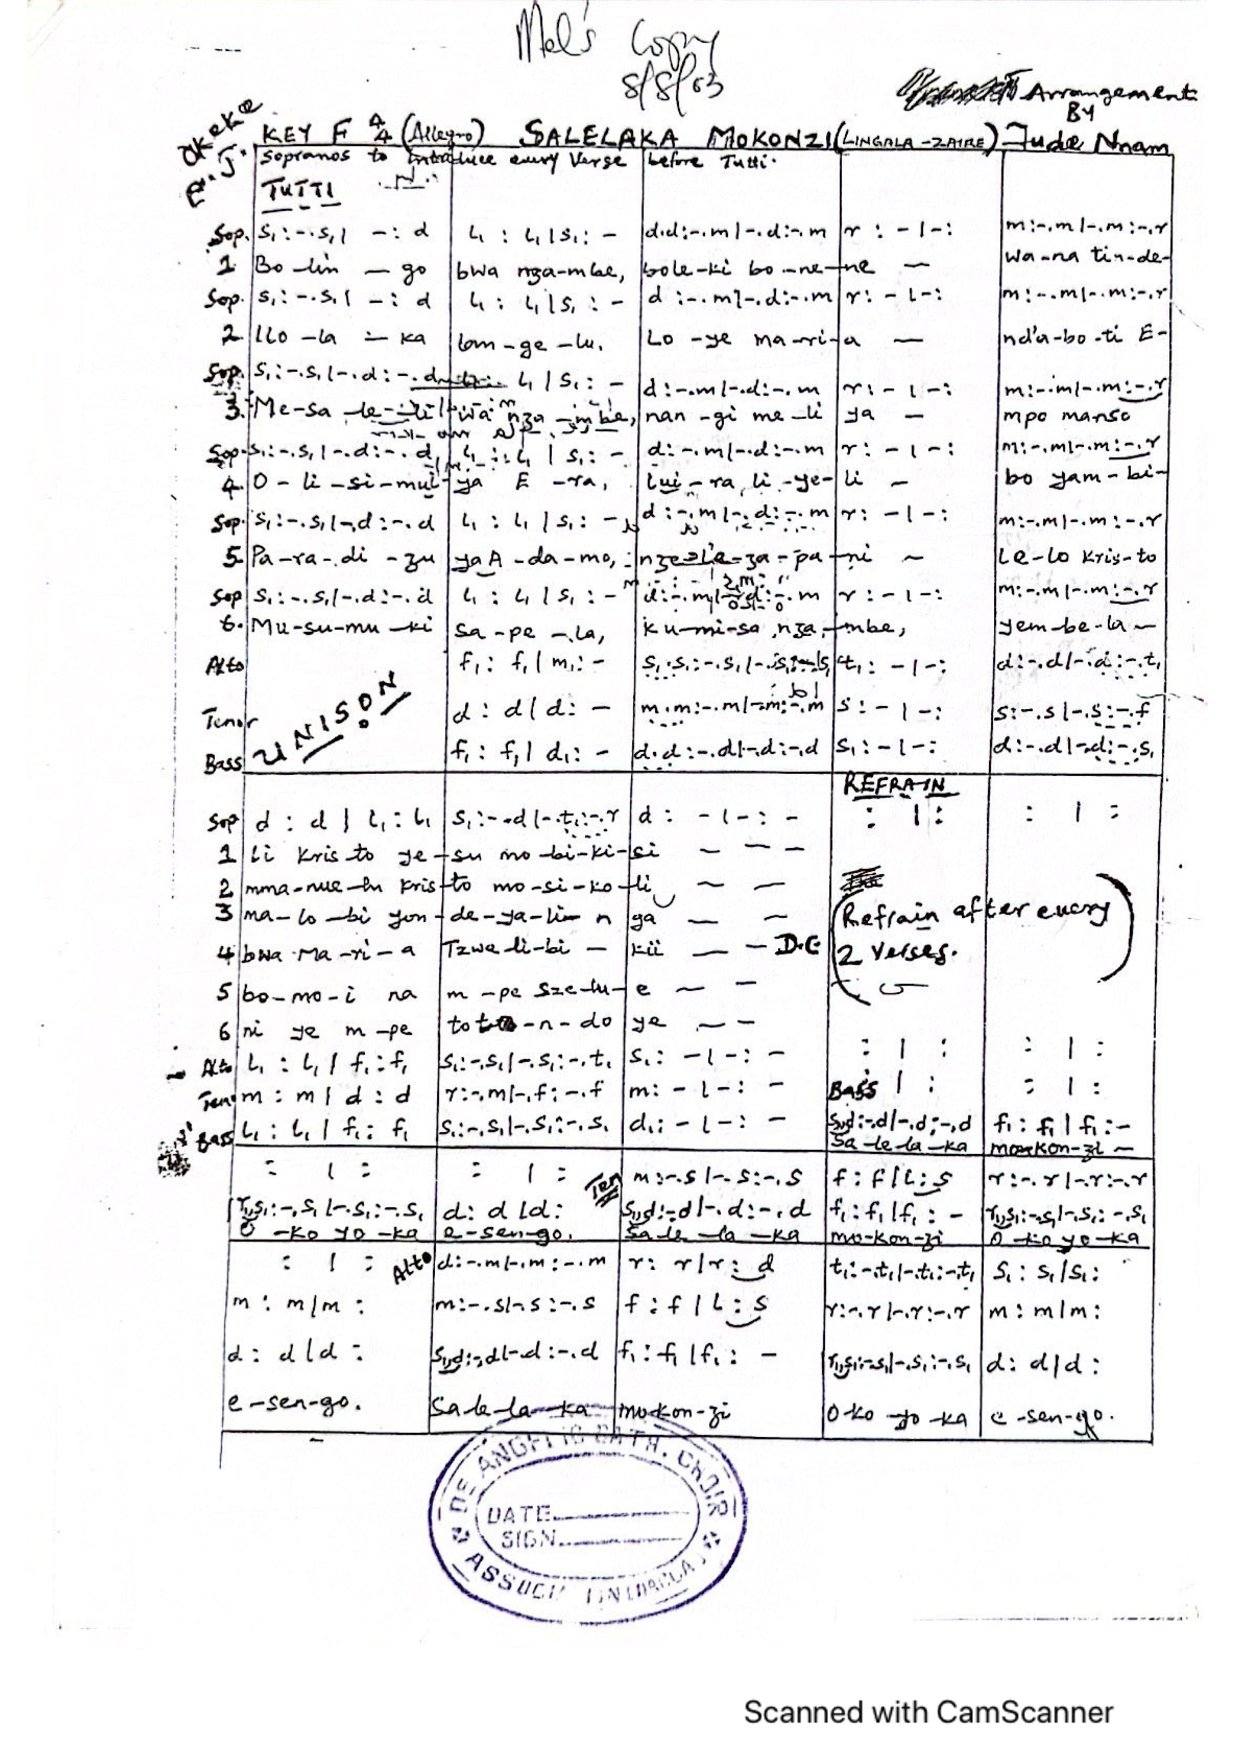 Mel's Copy
8/8/03
Arrangement
BY
OKEKE
E. J.
KEY F 4/4 (Allegro) SALELAKA MOKONZI (LINGALA -ZAIRE) Jude Nnam
Sopranos to introduce every Verse before Tutti.
TUTTI
Sop. s₁:-.s₁| -: d | l₁ : l₁|s₁: - | d.d:-.m|-.d:-.m | r : -|-: | m:-.m|-.m:-.r
1 Bo-lin - go | bwa nza-mbe, | bole-ki bo-ne-ne - | wa-na tin-de-
Sop. s₁:-.s₁| -: d | l₁ : l₁|s₁ : - | d :-.m|-.d:-.m | r: -|-: | m:-.m|-.m:-.r
2 llo-la - ka | lom-ge-lu. | Lo-ye ma-ri-a - | nd'a-bo-ti E-
Sop. s₁:-.s₁|-.d:-. | l₁ | s₁: - | d:-.m|-.d:-.m | r: -|-: | m:-.m|-.m:-.r
3. Me-sa | nza-mbe, | nan-gi me-li ya - | mpo manso
Sop. s₁:-.s₁|-.d:-.d | l₁ : l₁ | s₁: - | d:-.m|-.d:-.m | r: -|-: | m:-.m|-.m:-.r
4. O-li-si-mui | ya E-ra, | lui-ra li-ye-li - | bo yam-bi-
Sop. s₁:-.s₁|-.d:-.d | l₁ : l₁ | s₁: - | d:-.m|-.d:-.m | r: -|-: | m:-.m|-.m:-.r
5. Pa-ra-di-zu | ya A-da-mo, | za-pa-ni - | Le-lo Kris-to
Sop s₁:-.s₁|-.d:-.d | l₁ : l₁ | s₁: - | m | r: -|-: | m:-.m|-.m:-.r
6. Mu-su-mu-ki | Sa-pe-la, | ku-mi-sa nza-mbe, | yem-be-la-
Alto | f₁: f₁|m₁: - | s₁.s₁:-.s₁|-.s₁:-.s₁ | t₁: -|-: | d:-.d|-.d:-.t₁
UNISON
Tenor | d : d|d: - | m.m:-.m|-.m:-.m | s: -|-: | s:-.s|-.s:-.f
Bass | f₁: f₁|d₁: - | d.d:-.d|-.d:-.d | s₁: -|-: | d:-.d|-.d:-.s₁
REFRAIN
Sop d : d | l₁ : l₁ | s₁:-.d|-.t₁:-.r | d: -|-: - | : | : | : | :
1 li Kris-to ye-su mo-bi-ki-si - - -
2 mma-nue-lu Kris-to mo-si-ko-li - -
3 ma-lo-bi yon-de-ya-li-n ga - -
Refrain after every
4 bwa Ma-ri-a Tzwe-li-bi - kii - - D.C
2 Verses.
5 bo-mo-i na m-pe Sze-lu-e - -
6 ni ye m-pe -n-do ye - -
Alto l₁ : l₁ | f₁ : f₁ | s₁:-.s₁|-.s₁:-.t₁ | s₁: -|-: - | : | : | : | :
Ten m : m | d : d | r:-.m|-.f:-.f | m: -|-: - | Bass | : | : | :
Bass l₁ : l₁ | f₁ : f₁ | s₁:-.s₁|-.s₁:-.s₁ | d₁: -|-: - | s₁,d:-.d|-.d:-.d | f₁: f₁|f₁:-
Sa-le-la-ka mo-kon-zi -
: | : | : | : | Ten m:-.s|-.s:-.s | f : f|l:s | r:-.r|-.r:-.r
t₁,s₁:-.s₁|-.s₁:-.s₁ | d: d|d: | s₁,d:-.d|-.d:-.d | f₁: f₁|f₁: - | t₁,s₁:-.s₁|-.s₁:-.s₁
O-ko yo-ka | e-sen-go. | Sa-le-la-ka | mo-kon-zi | O-ko yo-ka
: | : | Alto d:-.m|-.m:-.m | r: r|r: d | t₁:-.t₁|-.t₁:-.t₁ | s₁: s₁|s₁:
m : m|m : | m:-.s|-.s:-.s | f : f|l : s | r:-.r|-.r:-.r | m : m|m:
d : d|d : | s₁,d:-.d|-.d:-.d | f₁ : f₁|f₁ : - | t₁,s₁:-.s₁|-.s₁:-.s₁ | d: d|d:
e-sen-go. | Sa-le-la-ka | mo-kon-zi | O-ko yo-ka | e-sen-go.
DE ANGELIC CATH. CHOIR
DATE
SIGN
Scanned with CamScanner